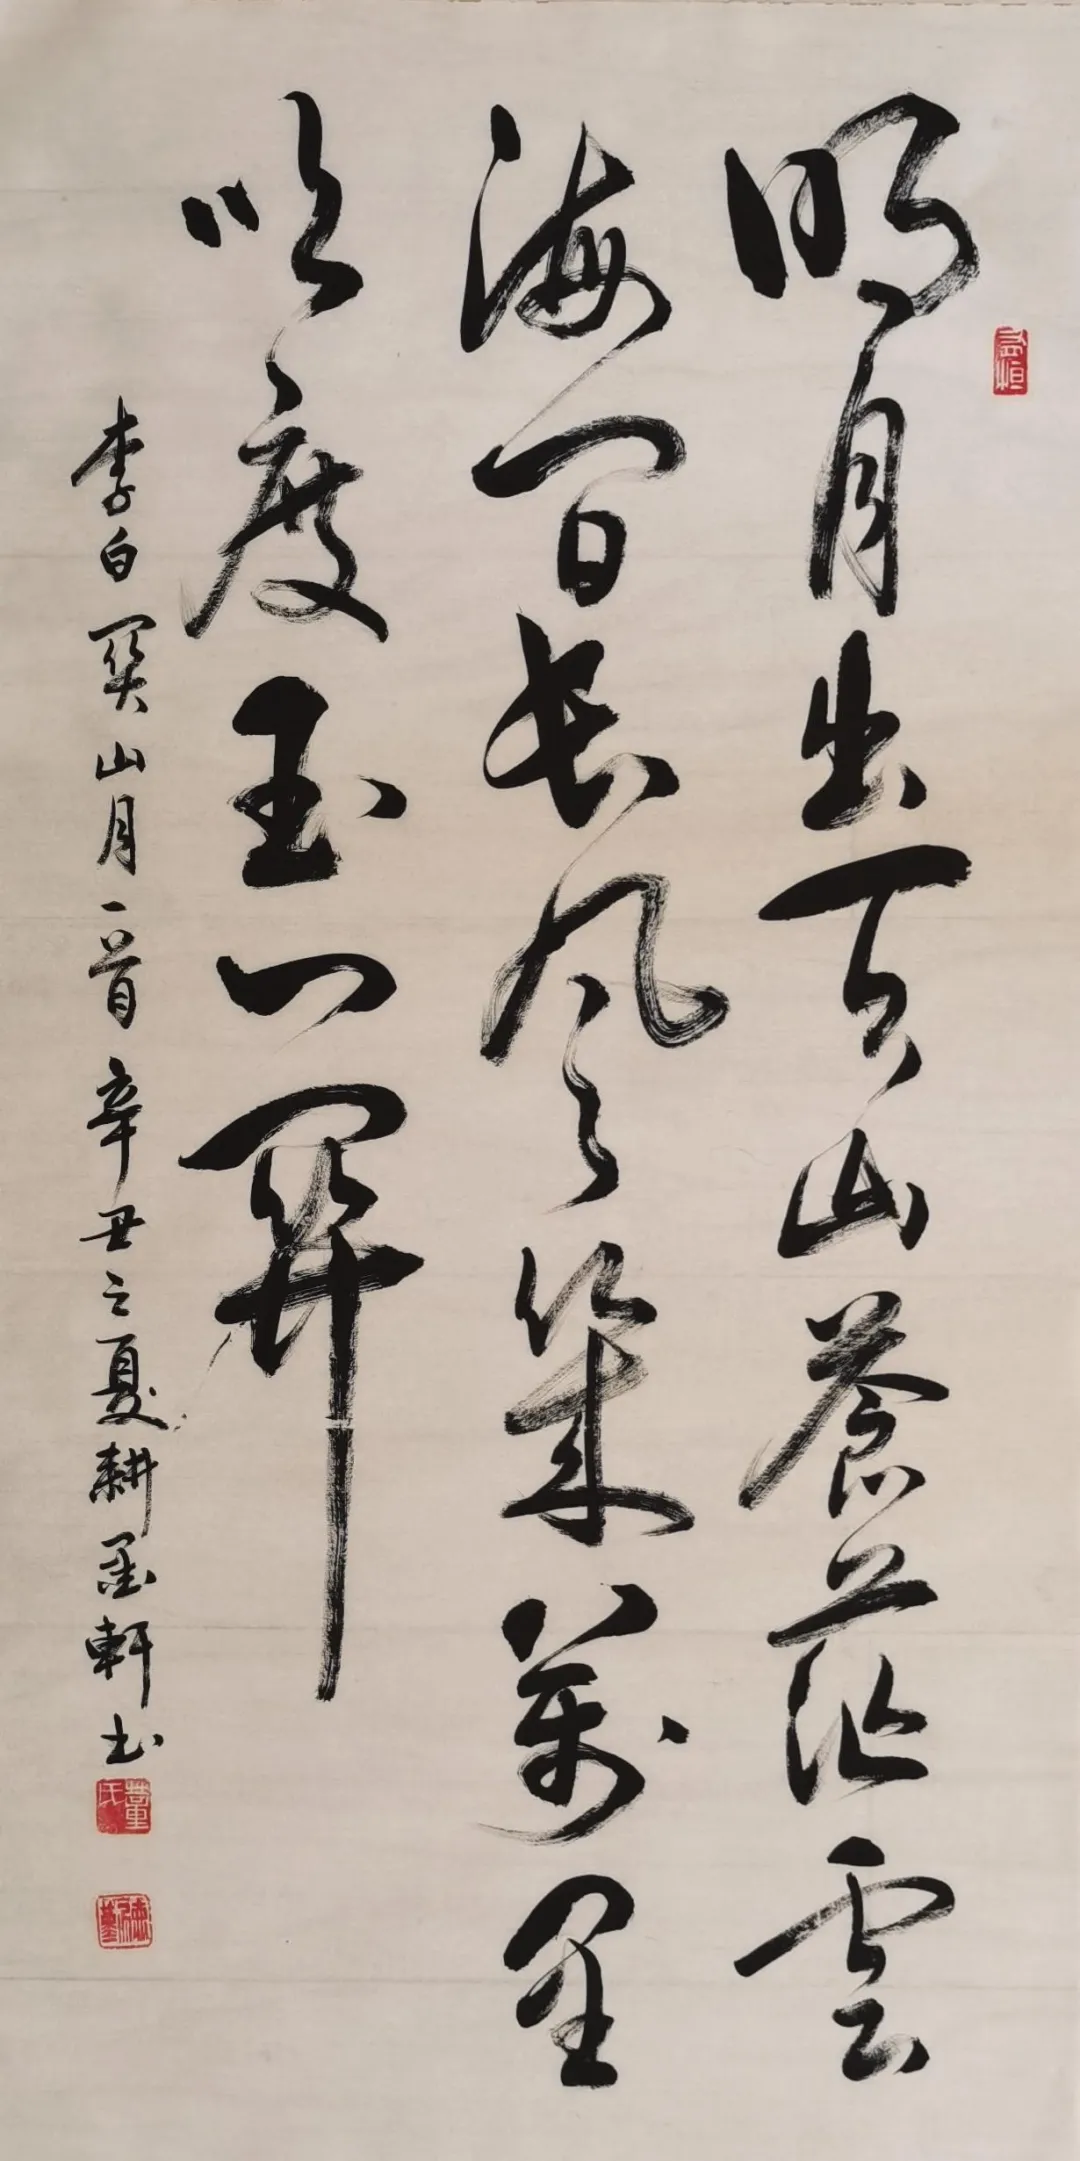 明月出天山蒼茫雲
海間長風幾萬里
吹度玉門關
李白關山月一首辛丑之夏耕墨軒書
董氏